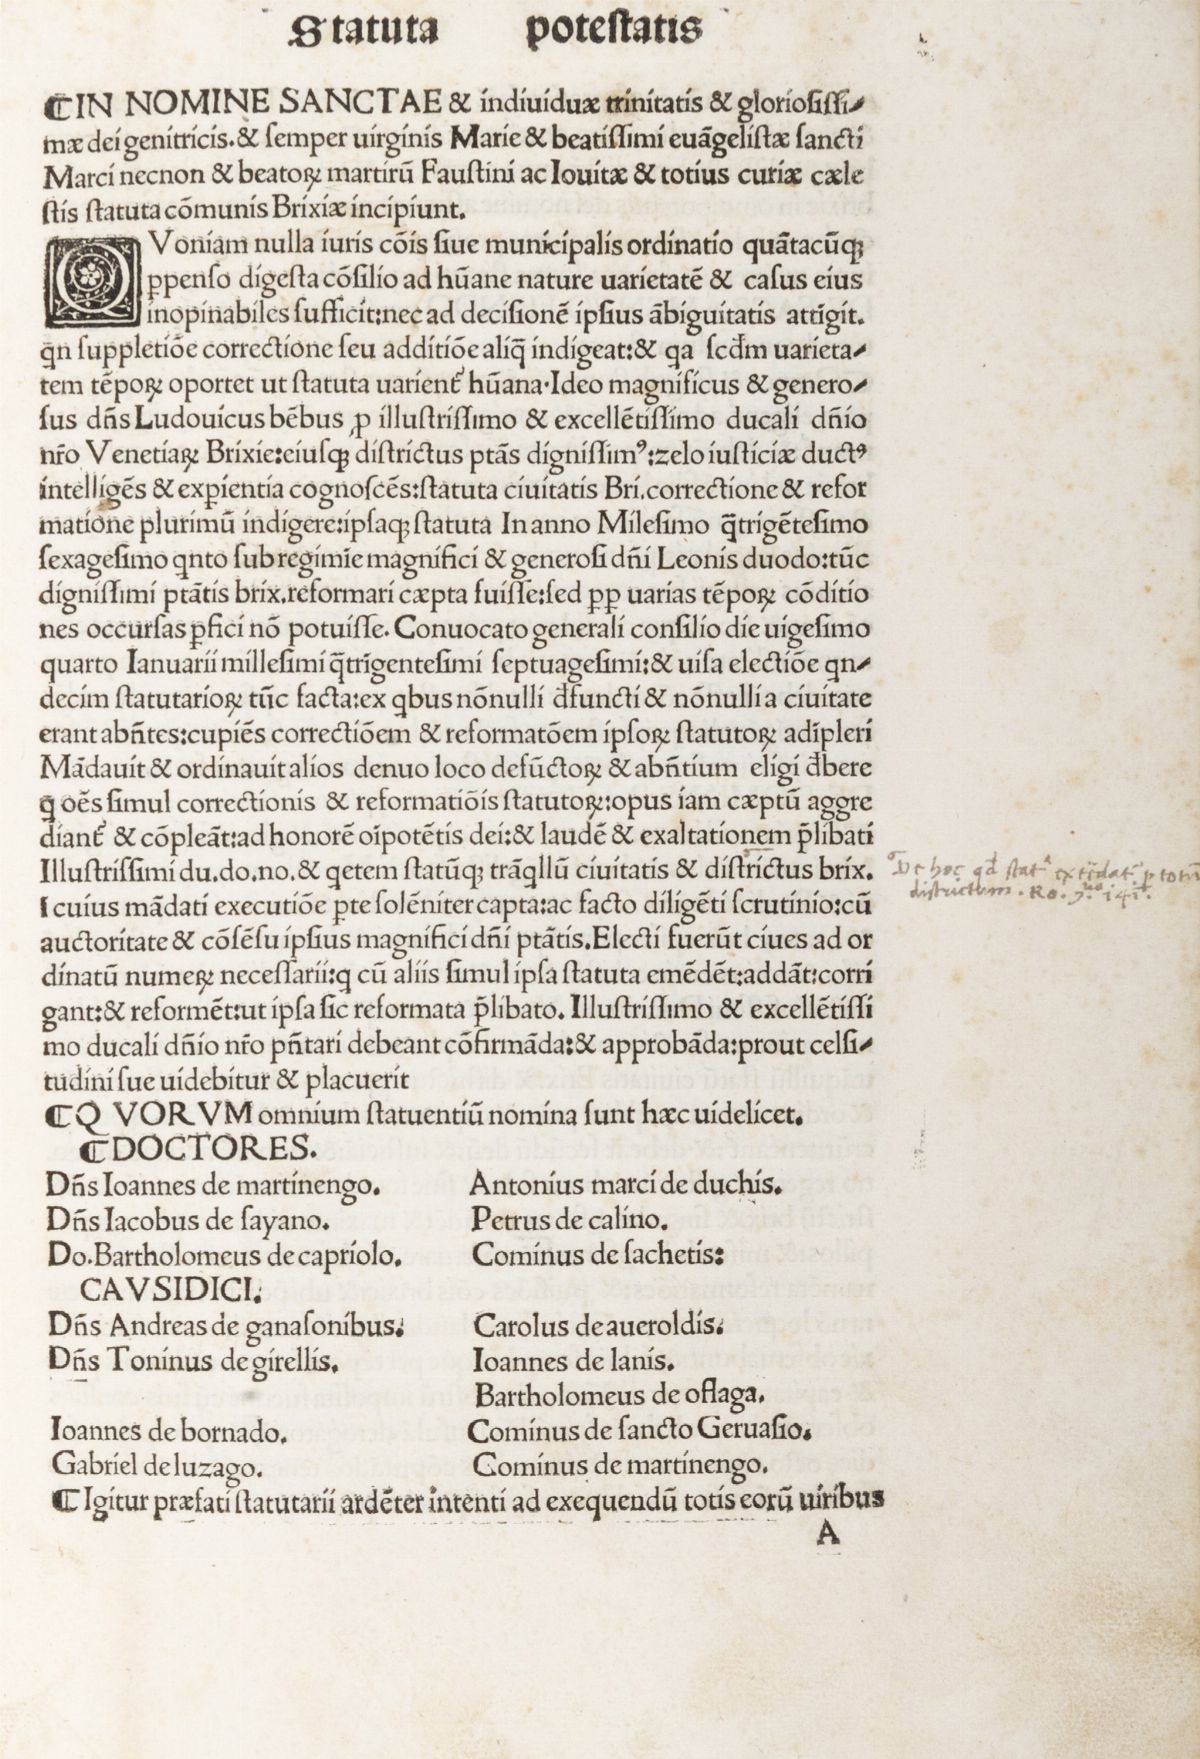 Statuta potestatis
¶IN NOMINE SANCTAE & indiuiduæ trinitatis & gloriosissi⸗
mæ dei genitricis.& semper uirginis Marie & beatissimi euāgelistæ sancti
Marci necnon & beatoꝝ martirū Faustini ac Iouitæ & totius curiæ cæle
stis statuta cōmunis Brixiæ incipiunt.
QVoniam nulla iuris cōis siue municipalis ordinatio quātacūqꝫ
ꝓpenso digesta cōsilio ad hūane nature uarietatē & casus eius
inopinabiles sufficit:nec ad decisionē ipsius ābiguitatis attigit.
qn suppletiōe correctione seu additiōe aliq̄ indigeat:& qa scd̄m uarieta⸗
tem tēpoꝝ oportet ut statuta uarient᷑ hūana·Ideo magnificus & genero⸗
sus dn̄s Ludouicus bēbus ꝓ illustrissimo & excellētissimo ducali dn̄io
nr̄o Venetiaꝝ Brixie:eiusqꝫ districtus ptās dignissimꝰ:zelo iusticiæ ductꝰ
intelligēs & exꝑientia cognoscēs:statuta ciuitatis Bri.correctione & refor
matione plurimū indigere:ipsaqꝫ statuta In anno Milesimo q̄trigētesimo
sexagesimo qnto sub regimīe magnifici & generosi dn̄i Leonis duodo:tūc
dignissimi ptātis brix.reformari cæpta fuisse:sed ꝓꝑ uarias tēpoꝝ cōditio
nes occursas ꝑfici nō potuisse. Conuocato generali consilio die uigesimo
quarto Ianuarii millesimi q̄trigentesimi septuagesimi:& uisa electiōe qn⸗
decim statutarioꝝ tūc facta:ex qbus nōnulli d̄functi & nōnulli a ciuitate
erant abn̄tes:cupiēs correctiōem & reformatōem ipsoꝝ statutoꝝ adīpleri
Mādauit & ordinauit alios denuo loco defūctoꝝ & abn̄tium eligi d̄bere
q̄ oēs simul correctionis & reformatiōis statutoꝝ:opus iam cæptū aggre
diant᷑ & cōpleāt:ad honorē oīpotētis dei:& laudē & exaltationem p̄libati
Illustrissimi du.do.no.& qetem statūqꝫ trāqllū ciuitatis & districtus brix.
I cuius mādati executiōe ꝑte solēniter capta:ac facto diligēti scrutinio:cū
auctoritate & cōsēsu ipsius magnifici dn̄i ptātis.Electi fuerūt ciues ad or
dinatū numeꝝ necessarii:q cū aliis simul ipsa statuta emēdēt:addāt:corri
gant:& reformēt:ut ipsa sic reformata p̄libato. Illustrissimo & excellētissi
mo ducali dn̄io nr̄o pn̄tari debeant cōfirmāda:& approbāda:prout celsi⸗
tudini sue uidebitur & placuerit
¶QVORVM omnium statuentiū nomina sunt hæc uidelicet.
¶DOCTORES.
Dn̄s Ioannes de martinengo. Antonius marci de duchis.
Dn̄s Iacobus de sayano. Petrus de calino.
Do.Bartholomeus de capriolo. Cominus de sachetis:
CAVSIDICI.
Dn̄s Andreas de ganasonibus. Carolus de aueroldis.
Dn̄s Toninus de girellis. Ioannes de lanis.
Bartholomeus de oflaga.
Ioannes de bornado. Cominus de sancto Geruasio.
Gabriel de luzago. Cominus de martinengo.
¶Igitur præfati statutarii ardēter intenti ad exequendū totis eorū uiribus
A
De hoc qd stat
districtum. Ro.